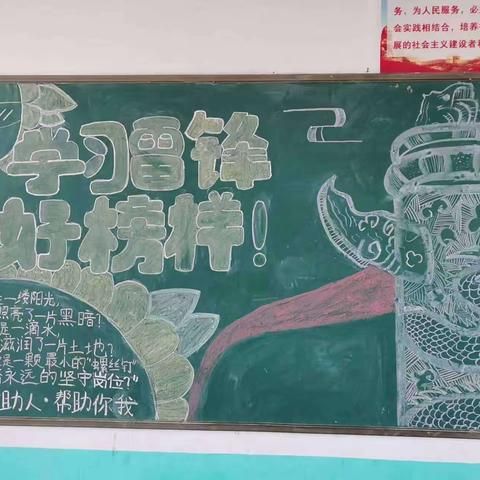 务、为人民服务，必
会实践相结合，培养
展的社会主义建设者和
学习雷锋
好榜样！
一缕阳光，
照亮了一片黑暗！
一滴水
滋润了一片土地？
是一颗最小的"螺丝钉"
永远的坚守岗位？"
助人·帮助你我